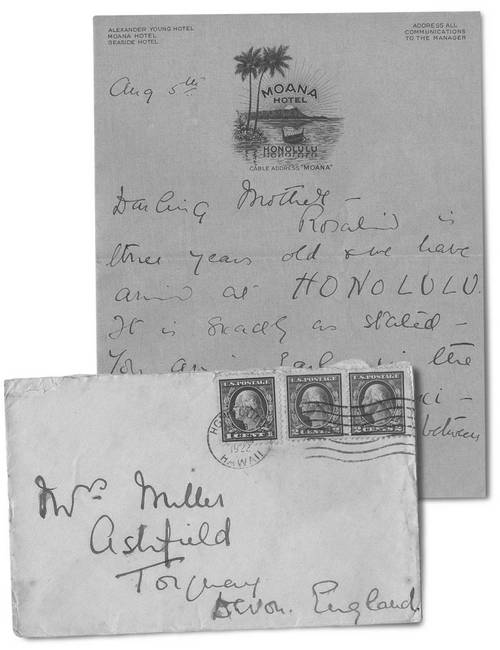 ALEXANDER YOUNG HOTEL
MOANA HOTEL
SEASIDE HOTEL
ADDRESS ALL
COMMUNICATIONS
TO THE MANAGER
Aug 5th
MOANA
HOTEL
HONOLULU
CABLE ADDRESS "MOANA"
Darling Mother –
Rosalind is
three years old & we have
arrived at HONOLULU.
It is exactly as stated –
You arrive early in the
between
U.S. POSTAGE
1 CENT 1
U.S. POSTAGE
2 CENTS 2
U.S. POSTAGE
2 CENTS 2
1922
HAWAII
Mrs Miller
Ashfield
Torquay
Devon. England.